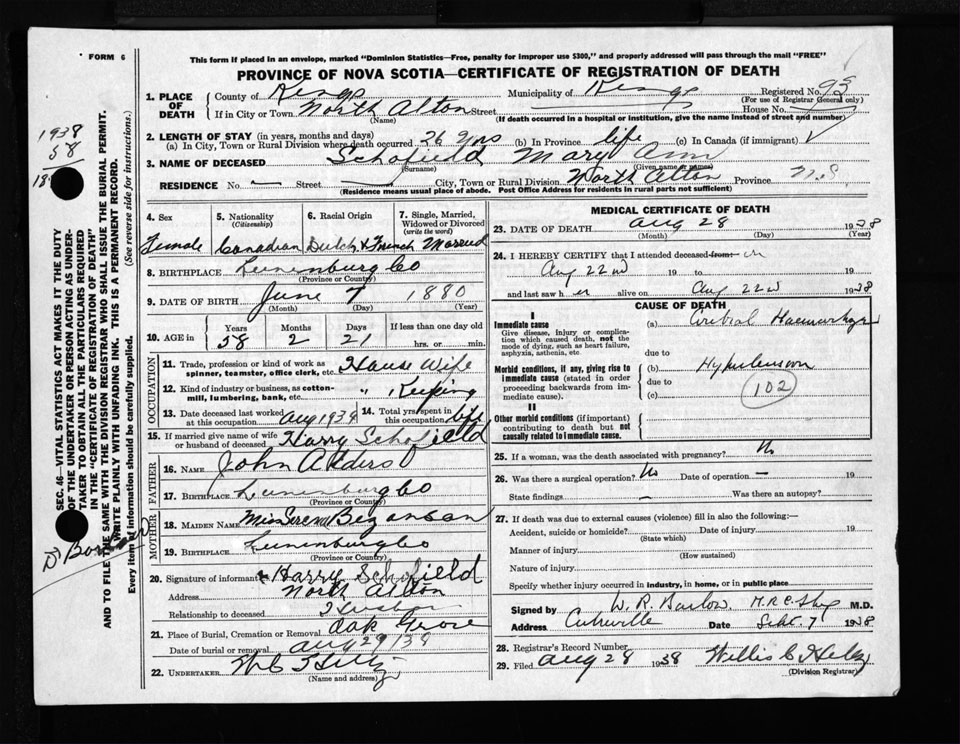 FORM 6
This form if placed in an envelope, marked "Dominion Statistics—Free, penalty for improper use $300," and properly addressed will pass through the mail "FREE"
PROVINCE OF NOVA SCOTIA—CERTIFICATE OF REGISTRATION OF DEATH
1. PLACE OF DEATH County of Kings Municipality of Kings Registered No. 93
(For use of Registrar General only)
If in City or Town North Alton Street House No.
(Name) (If death occurred in a hospital or institution, give the name instead of street and number)
2. LENGTH OF STAY (in years, months and days)
(a) In City, Town or Rural Division where death occurred 26 yrs (b) In Province life (c) In Canada (if immigrant)
3. NAME OF DECEASED Schofield Mary Ann
(Surname) (Given name or names)
RESIDENCE No. — Street City, Town or Rural Division North Alton Province N.S.
(Residence means usual place of abode. Post Office Address for residents in rural parts not sufficient)
4. Sex 5. Nationality (Citizenship) 6. Racial Origin 7. Single, Married, Widowed or Divorced (write the word)
Female Canadian Dutch & French Married
8. BIRTHPLACE Lunenburg Co
(Province or County)
9. DATE OF BIRTH June 7 1880
(Month) (Day) (Year)
10. AGE in Years Months Days If less than one day old
58 2 21 hrs. or min.
OCCUPATION
11. Trade, profession or kind of work as spinner, teamster, office clerk, etc. House Wife
12. Kind of industry or business, as cotton-mill, lumbering, bank, etc. " Keeping
13. Date deceased last worked at this occupation Aug 1938 14. Total yrs. spent in this occupation life
15. If married give name of wife or husband of deceased Harry Schofield
FATHER
16. NAME John
17. BIRTHPLACE Lunenburg Co
(Province or County)
MOTHER
18. MAIDEN NAME Miss
19. BIRTHPLACE Lunenburg Co
(Province or County)
20. Signature of informant Harry Schofield
Address North Alton
Relationship to deceased Husban
21. Place of Burial, Cremation or Removal Oak Grove
Date of burial or removal Aug 29/38
22. UNDERTAKER
(Name and address)
MEDICAL CERTIFICATE OF DEATH
23. DATE OF DEATH Aug 28 1938
(Month) (Day) (Year)
24. I HEREBY CERTIFY that I attended deceased from: on
Aug 22nd 19 to 19
and last saw her alive on Aug 22nd 1938
CAUSE OF DEATH
I
Immediate cause
Give disease, injury or complication which caused death, not the mode of dying, such as heart failure, asphyxia, asthenia, etc.
(a) Cerebral Haemorrhage
due to
Morbid conditions, if any, giving rise to immediate cause (stated in order proceeding backwards from immediate cause).
(b) Hypertension
due to
(c) 102
II
Other morbid conditions (if important) contributing to death but not causally related to immediate cause.
25. If a woman, was the death associated with pregnancy? No
26. Was there a surgical operation? No Date of operation — 19
State findings — Was there an autopsy?
27. If death was due to external causes (violence) fill in also the following:—
Accident, suicide or homicide? Date of injury 19
(State which)
Manner of injury
(How sustained)
Nature of injury
Specify whether injury occurred in industry, in home, or in public place
Signed by W. R. Barlow M.D.
Address Date Sept 7 1938
28. Registrar's Record Number
29. Filed Aug 28 1938 Willis C
(Division Registrar)
1938
58
SEC. 46—VITAL STATISTICS ACT MAKES IT THE DUTY
OF THE UNDERTAKER OR PERSON ACTING AS UNDER-
TAKER TO OBTAIN ALL THE PARTICULARS REQUIRED
IN THE "CERTIFICATE OF REGISTRATION OF DEATH"
AND TO FILE THE SAME WITH THE DIVISION REGISTRAR WHO SHALL ISSUE THE BURIAL PERMIT.
WRITE PLAINLY WITH UNFADING INK. THIS IS A PERMANENT RECORD.
Every item of information should be carefully supplied. (See reverse side for instructions.)